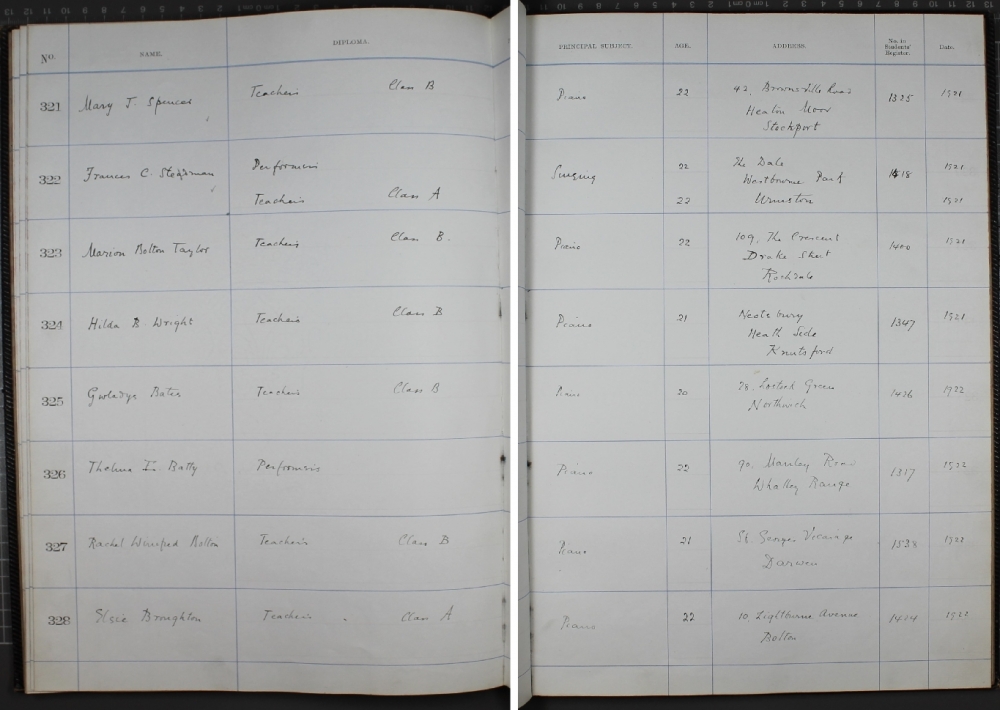 No. NAME. DIPLOMA. PRINCIPAL SUBJECT. AGE. ADDRESS. No. in Students' Register. Date.
321 Mary J. Spencer Teacher's Class B Piano 22 42, Brownsville Road 1325 1921
Heaton Moor
Stockport
322 Frances C. Performer's Singing 22 The Dale 1418 1921
Westbourne Park
Teacher's Class A 22 Urmston 1921
323 Marion Bolton Taylor Teacher's Class B. Piano 22 109, The Crescent 1400 1921
Drake Street
Rochdale
324 Hilda B. Wright Teacher's Class B Piano 21 1347 1921
Heath Side
Knutsford
325 Gwladys Bates Teacher's Class B Piano 20 28, Lostock Green 1426 1922
Northwich
326 Thelma I. Batty Performer's Piano 22 90, Manley Road 1317 1922
Whalley Range
327 Rachel Winifred Bolton Teacher's Class B Piano 21 St. George's Vicarage 1922
Darwen
328 Elsie Broughton Teacher's Class A Piano 22 10, Lightburne Avenue 1922
Bolton